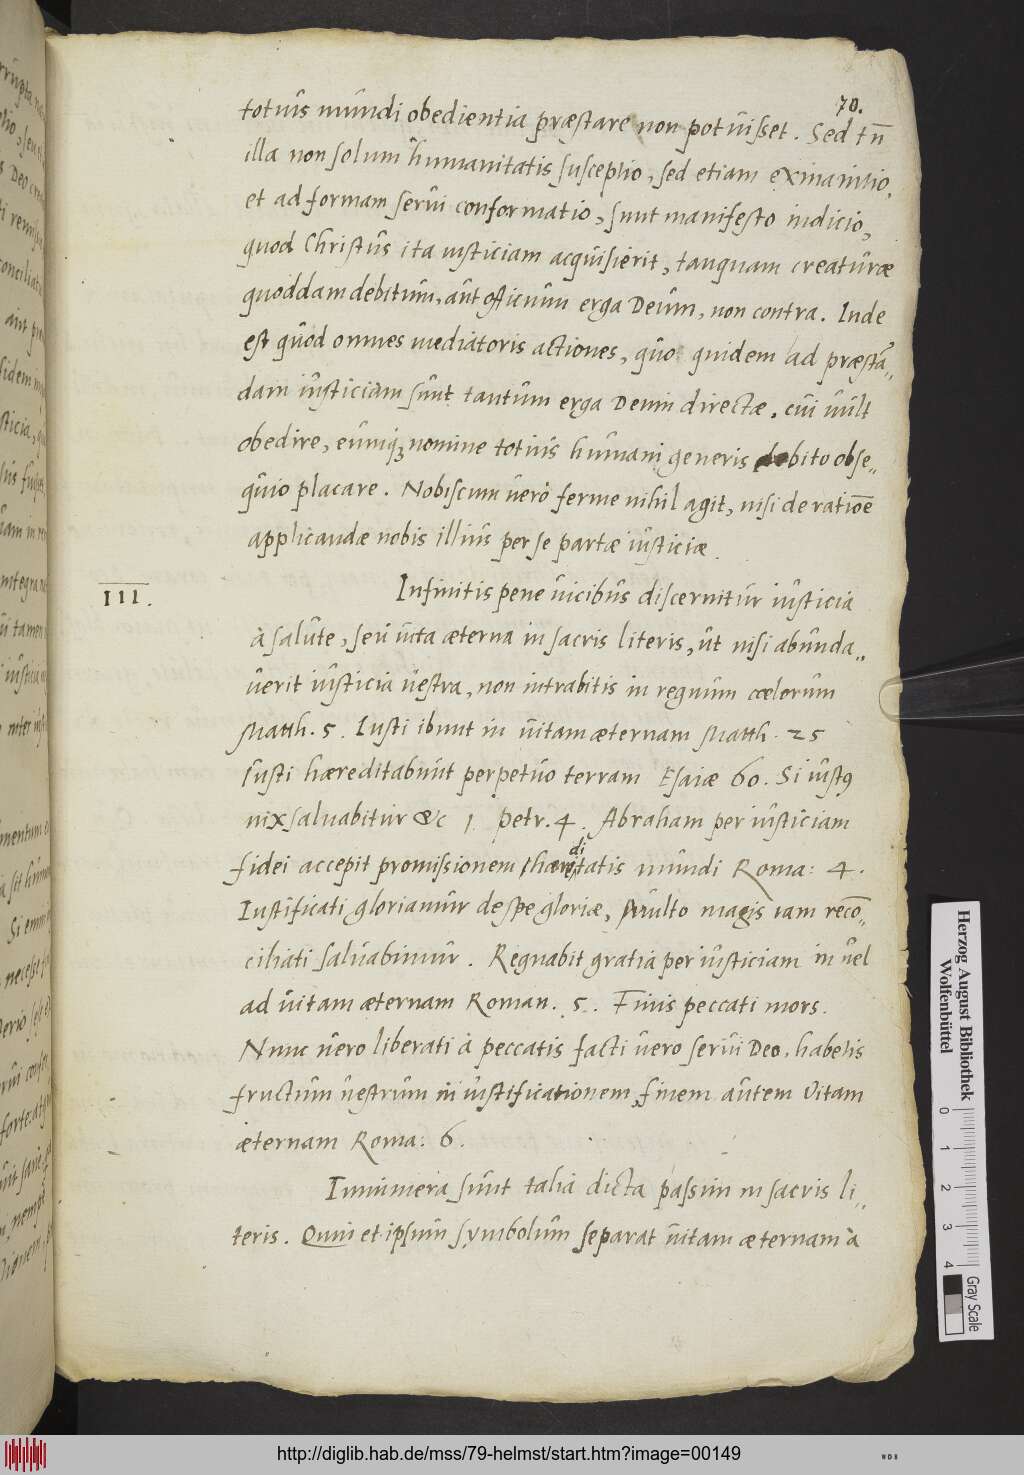 70.
totius mundi obedientia præstare non potuisset. Sed tñ
illa non solum humanitatis susceptio, sed etiam exinanitio,
et ad formam serui conformatio, sunt manifesto indicio,
quod Christus ita iusticiam acquisierit, tanquam creaturæ
quoddam debitum, aut officium erga Deum, non contra. Inde
est quod omnes mediatoris actiones, quo quidem ad præstā„
dam iusticiam sunt tantum erga Deum directæ. cui uult
obedire, eumq; nomine totius humani generis debito obse„
quio placare. Nobiscum uero ferme nihil agit, nisi de ratiōe
applicandæ nobis illius per se partæ iusticiæ.
III.
Infinitis pene uicibus discernitur iusticia
à salute, seu uita æterna in sacris literis, ut nisi abunda„
uerit iusticia uestra, non intrabitis in regnum cœlorum
Matth. 5. Iusti ibunt in uitam æternam Matth. 25
Iusti hæreditabunt perpetuo terram Esaiæ 60. Si iust9
uix saluabitur &c 1 Petr. 4. Abraham per iusticiam
di
fidei accepit promissionem hæretatis mundi Roma: 4.
Iustificati gloriamur de spe gloriæ, multo magis iam recō„
ciliati saluabimur. Regnabit gratia per iusticiam in uel
ad uitam æternam Roman. 5. Finis peccati mors.
Nunc uero liberati à peccatis facti uero serui Deo, habetis
fructum uestrum in iustificationem, finem autem Vitam
æternam Roma: 6.
Innumera sunt talia dicta passim in sacris li„
teris. Quin et ipsum symbolum separat uitam æternam à
Herzog August Bibliothek
Wolfenbüttel
0 1 2 3 4
Gray Scale
http://diglib.hab.de/mss/79-helmst/start.htm?image=00149